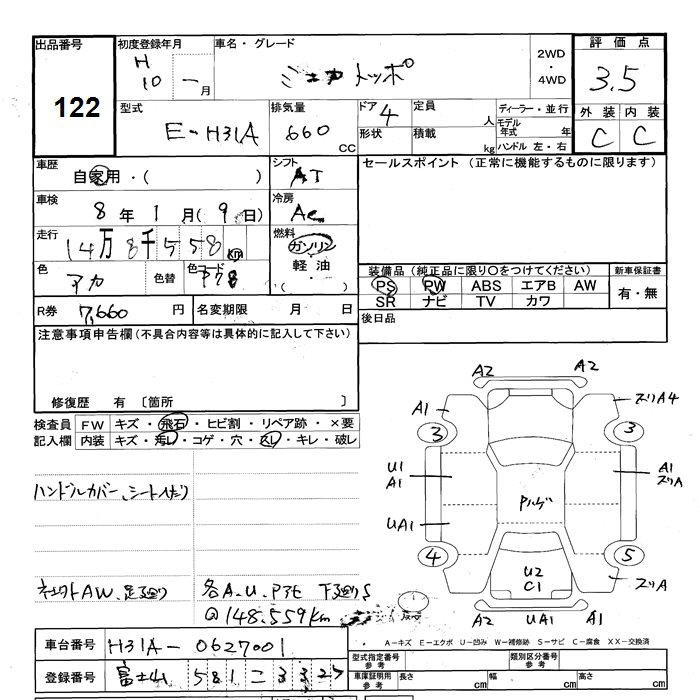 出品番号
122
初度登録年月
H
10 - 月
車名・グレード
ミニカトッポ
2WD
・
4WD
評価点
3.5
外装 内装
C C
型式
E-H31A
排気量
660 CC
ドア 4
形状
定員 人
積載 kg
ディーラー・並行
モデル年式 年
ハンドル 左・右
車歴
自家用・( )
シフト
AT
車検
8年1月(9日)
冷房
AC
走行
14万8千558km
燃料
ガソリン
軽油
・( )
色
アカ
色替
色コード
R券
7,660円
名変期限 月 日
セールスポイント (正常に機能するものに限ります)
装備品 (純正品に限り○をつけてください)
PS PW ABS エアB AW
SR ナビ TV カワ
新車保証書
有・無
後日品
注意事項申告欄(不具合内容等は具体的に記入して下さい)
修復歴 有 〔箇所 〕
検査員記入欄
FW キズ・飛石・ヒビ割・リペア跡・×要
内装 キズ・汚レ・コゲ・穴・スレ・キレ・破レ
ハンドルカバー、シート
AW、
各A.U.
@148.559km
A2 A2
A1 ズリA4
3 3
U1
A1
A1
ズリA
Pハゲ
UA1
4 5
U2
C1
ズリA
A2 UA1 A1
A-キズ E-エクボ U-凹み W-補修跡 S-サビ C-腐食 XX-交換済
車台番号
H31A-0627001
登録番号
富士山 581 こ 3325
型式指定番号 参考
類別区分番号 参考
車庫証明用 参考
長さ cm
幅 cm
高さ cm